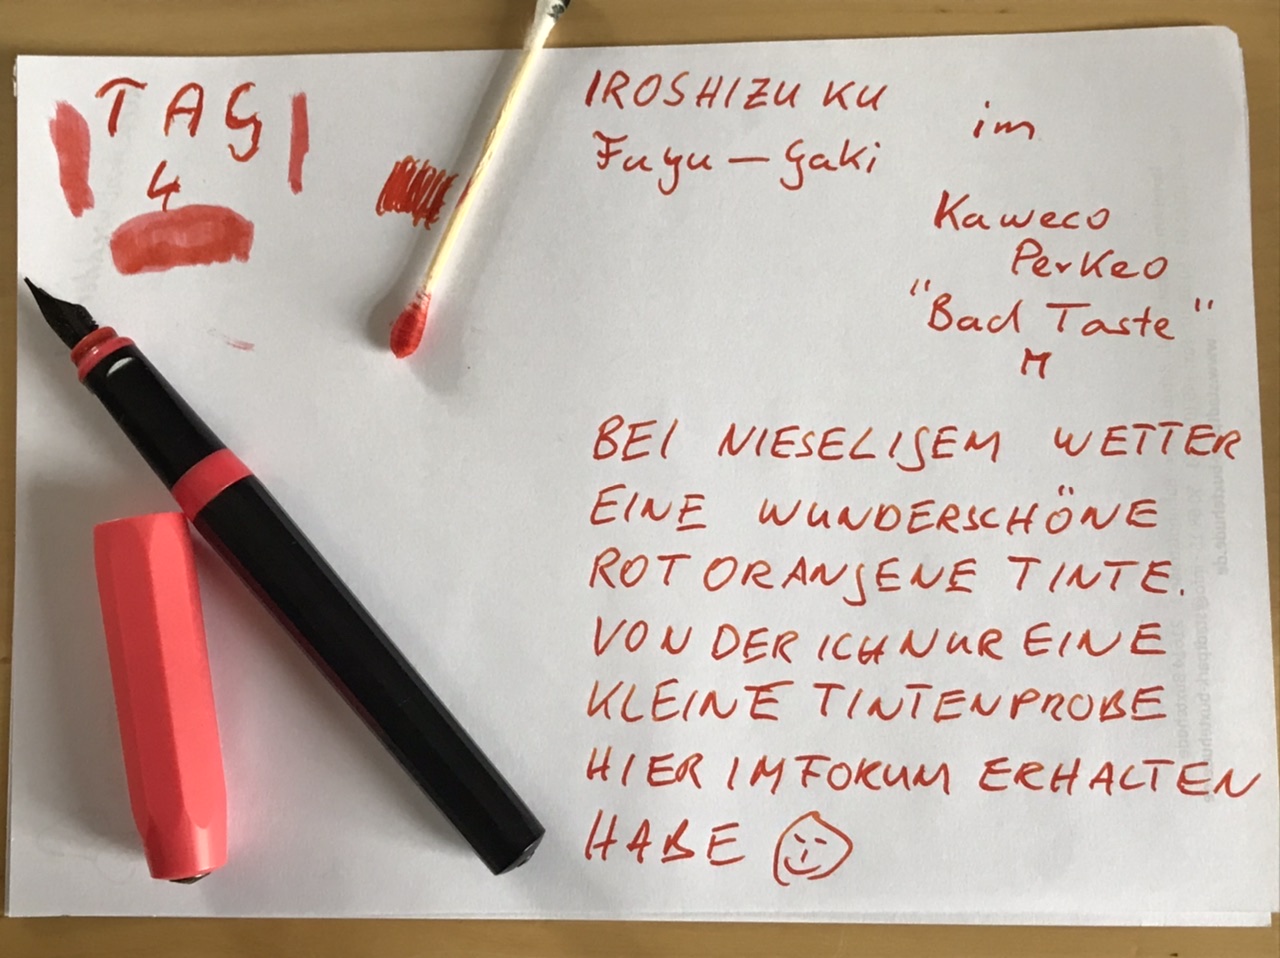 TAG
4
IROSHIZUKU
Fuyu – Gaki
im
Kaweco
Perkeo
"Bad Taste"
M
BEI NIESELIGEM WETTER
EINE WUNDERSCHÖNE
ROTORANGENE TINTE.
VON DER ICH NUR EINE
KLEINE TINTENPROBE
HIER IM FORUM ERHALTEN
HABE